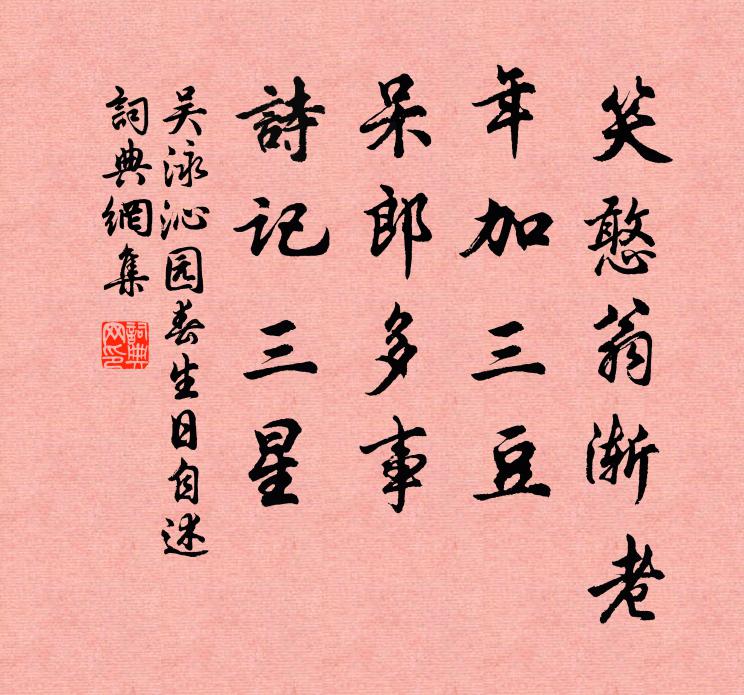 笑憨翁渐老
年加三豆
呆郎多事
詩記三星
吴泳沁园春生日自述
詞典網集
詞典网印